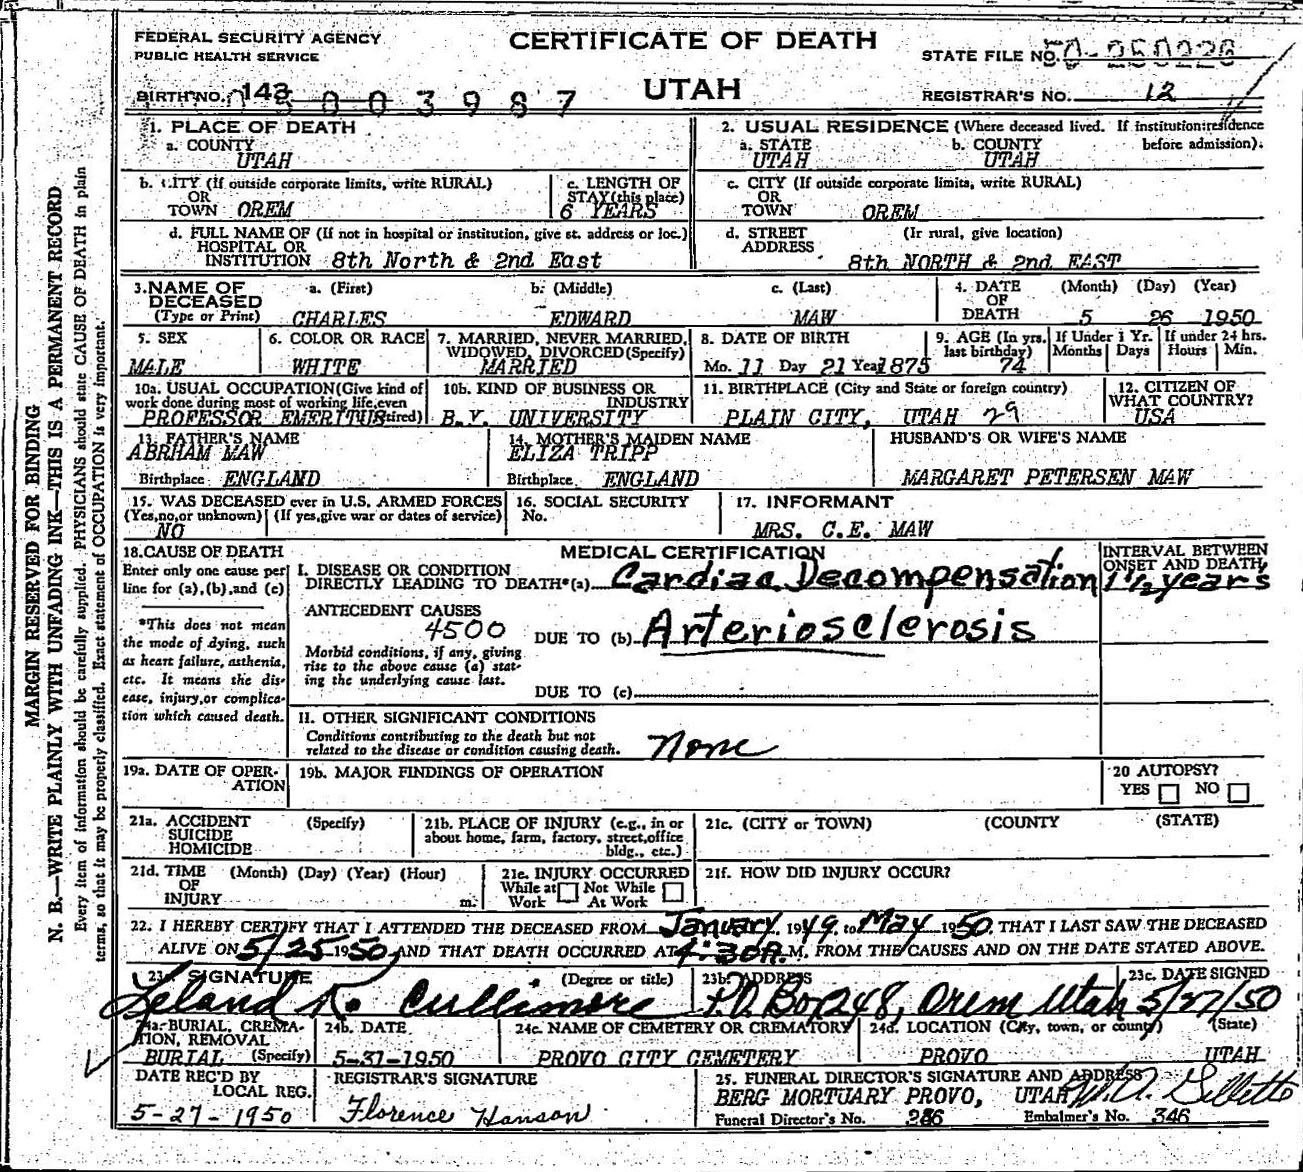 FEDERAL SECURITY AGENCY
PUBLIC HEALTH SERVICE
CERTIFICATE OF DEATH
STATE FILE NO. 50-250226
BIRTH NO. 143 003987
UTAH
REGISTRAR'S NO. 12
MARGIN RESERVED FOR BINDING
N. B.—WRITE PLAINLY WITH UNFADING INK—THIS IS A PERMANENT RECORD
Every item of information should be carefully supplied. PHYSICIANS should state CAUSE OF DEATH in plain
terms, so that it may be properly classified. Exact statement of OCCUPATION is very important.
1. PLACE OF DEATH
a. COUNTY
UTAH
2. USUAL RESIDENCE (Where deceased lived. If institution: residence
a. STATE b. COUNTY before admission).
UTAH UTAH
b. CITY (If outside corporate limits, write RURAL)
OR
TOWN OREM
c. LENGTH OF
STAY (this place)
6 YEARS
c. CITY (If outside corporate limits, write RURAL)
OR
TOWN OREM
d. FULL NAME OF (If not in hospital or institution, give st. address or loc.)
HOSPITAL OR
INSTITUTION 8th North & 2nd East
d. STREET (Ir rural, give location)
ADDRESS
8th NORTH & 2nd EAST
3. NAME OF a. (First) b. (Middle) c. (Last)
DECEASED
(Type or Print) CHARLES EDWARD MAW
4. DATE (Month) (Day) (Year)
OF
DEATH 5 26 1950
5. SEX
MALE
6. COLOR OR RACE
WHITE
7. MARRIED, NEVER MARRIED,
WIDOWED, DIVORCED (Specify)
MARRIED
8. DATE OF BIRTH
Mo. 11 Day 21 Year 1875
9. AGE (In yrs.
last birthday)
74
If Under 1 Yr.
Months Days
If under 24 hrs.
Hours Min.
10a. USUAL OCCUPATION (Give kind of
work done during most of working life, even
PROFESSOR EMERITUS tired)
10b. KIND OF BUSINESS OR
INDUSTRY
B.Y. UNIVERSITY
11. BIRTHPLACE (City and State or foreign country)
PLAIN CITY, UTAH 29
12. CITIZEN OF
WHAT COUNTRY?
USA
13. FATHER'S NAME
ABRHAM MAW
Birthplace ENGLAND
14. MOTHER'S MAIDEN NAME
ELIZA TRIPP
Birthplace ENGLAND
HUSBAND'S OR WIFE'S NAME
MARGARET PETERSEN MAW
15. WAS DECEASED ever in U.S. ARMED FORCES
(Yes, no, or unknown) (If yes, give war or dates of service)
NO
16. SOCIAL SECURITY
No.
17. INFORMANT
MRS. C.E. MAW
18. CAUSE OF DEATH
Enter only one cause per
line for (a), (b), and (c)
*This does not mean
the mode of dying, such
as heart failure, asthenia,
etc. It means the dis-
ease, injury, or complica-
tion which caused death.
MEDICAL CERTIFICATION
I. DISEASE OR CONDITION
DIRECTLY LEADING TO DEATH*(a) Cardiac Decompensation
INTERVAL BETWEEN
ONSET AND DEATH
1 1/2 years
ANTECEDENT CAUSES
4500
DUE TO (b) Arteriosclerosis
Morbid conditions, if any, giving
rise to the above cause (a) stat-
ing the underlying cause last.
DUE TO (c)
II. OTHER SIGNIFICANT CONDITIONS
Conditions contributing to the death but not
related to the disease or condition causing death. none
19a. DATE OF OPER-
ATION
19b. MAJOR FINDINGS OF OPERATION
20 AUTOPSY?
YES NO
21a. ACCIDENT (Specify)
SUICIDE
HOMICIDE
21b. PLACE OF INJURY (e.g., in or
about home, farm, factory, street, office
bldg., etc.)
21c. (CITY or TOWN) (COUNTY (STATE)
21d. TIME (Month) (Day) (Year) (Hour)
OF
INJURY m.
21e. INJURY OCCURRED
While at Not While
Work At Work
21f. HOW DID INJURY OCCUR?
22. I HEREBY CERTIFY THAT I ATTENDED THE DECEASED FROM January 1949, to May 1950 THAT I LAST SAW THE DECEASED
ALIVE ON 5/25 1950, AND THAT DEATH OCCURRED AT 4:30A.M. FROM THE CAUSES AND ON THE DATE STATED ABOVE.
23a. SIGNATURE (Degree or title)
Leland K. Cullimore
23b. ADDRESS
P.O. Box 248, Orem Utah
23c. DATE SIGNED
5/27/50
24a. BURIAL, CREMA-
TION, REMOVAL
BURIAL (Specify)
24b. DATE
5-31-1950
24c. NAME OF CEMETERY OR CREMATORY
PROVO CITY CEMETERY
24d. LOCATION (City, town, or county) (State)
PROVO UTAH
DATE REC'D BY
LOCAL REG.
5-27-1950
REGISTRAR'S SIGNATURE
Florence Hanson
25. FUNERAL DIRECTOR'S SIGNATURE AND ADDRESS
BERG MORTUARY PROVO, UTAH Gillette
Funeral Director's No. Embalmer's No. 346